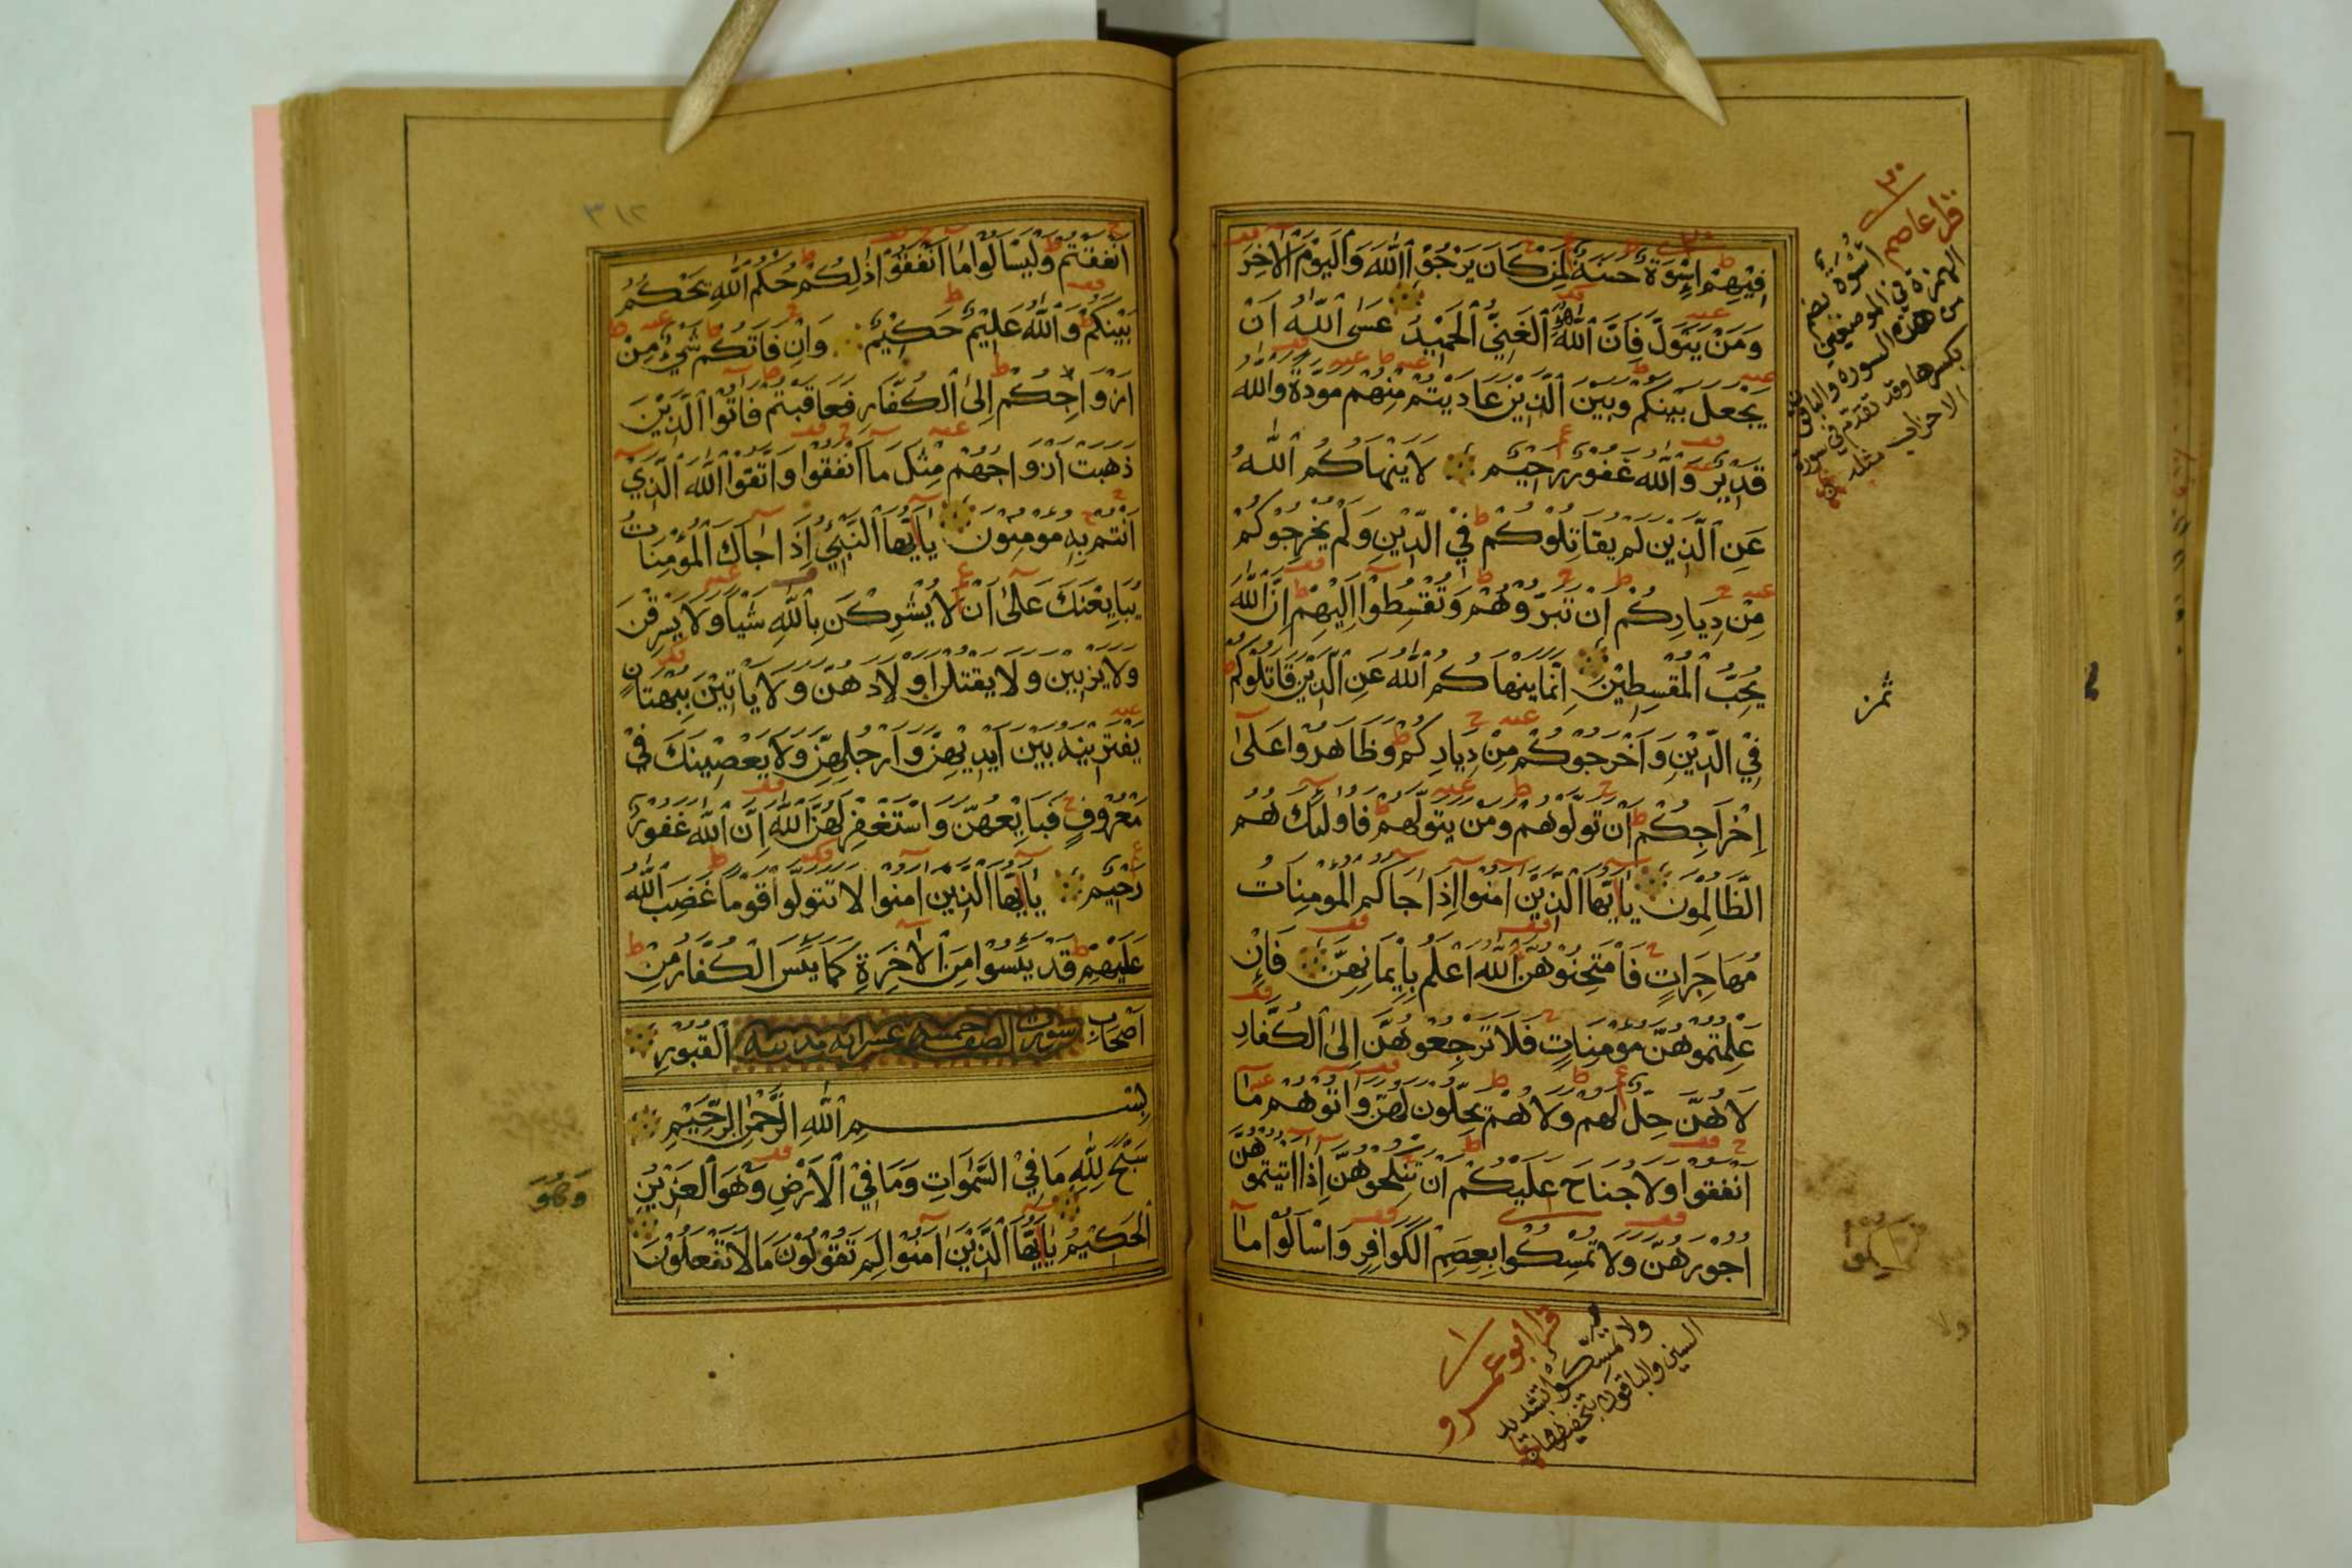 فِيْهِمْ اِسْوَةٌ حَسَنَةٌ لِمَنْ كَانَ يَرْجُوا اللّٰهَ وَالْيَوْمَ الْاٰخِرَ
وَمَنْ يَتَوَلَّ فَاِنَّ اللّٰهَ هُوَ الْغَنِيُّ الْحَمِيْدُ عَسَى اللّٰهُ اَنْ
يَجْعَلَ بَيْنَكُمْ وَبَيْنَ الَّذِيْنَ عَادَيْتُمْ مِنْهُمْ مَوَدَّةً وَاللّٰهُ
قَدِيْرٌ وَاللّٰهُ غَفُوْرٌ رَحِيْمٌ لَا يَنْهَاكُمُ اللّٰهُ
عَنِ الَّذِيْنَ لَمْ يُقَاتِلُوْكُمْ فِي الدِّيْنِ وَلَمْ يُخْرِجُوْكُمْ
مِنْ دِيَارِكُمْ اَنْ تَبَرُّوْهُمْ وَتُقْسِطُوْا اِلَيْهِمْ اِنَّ اللّٰهَ
يُحِبُّ الْمُقْسِطِيْنَ اِنَّمَا يَنْهَاكُمُ اللّٰهُ عَنِ الَّذِيْنَ قَاتَلُوْكُمْ
فِي الدِّيْنِ وَاَخْرَجُوْكُمْ مِنْ دِيَارِكُمْ وَظَاهَرُوْا عَلٰى
اِخْرَاجِكُمْ اَنْ تَوَلَّوْهُمْ وَمَنْ يَتَوَلَّهُمْ فَاُولٰئِكَ هُمُ
الظَّالِمُوْنَ يَا اَيُّهَا الَّذِيْنَ اٰمَنُوْا اِذَا جَاكُمُ الْمُؤْمِنَاتُ
مُهَاجِرَاتٍ فَامْتَحِنُوْهُنَّ اللّٰهُ اَعْلَمُ بِاِيْمَانِهِنَّ فَاِنْ
عَلِمْتُمُوْهُنَّ مُوْمِنَاتٍ فَلَا تَرْجِعُوْهُنَّ اِلَى الْكُفَّارِ
لَا هُنَّ حِلٌّ لَهُمْ وَلَا هُمْ يَحِلُّوْنَ لَهُنَّ وَاٰتُوْهُمْ مَا
اَنْفَقُوْا وَلَا جُنَاحَ عَلَيْكُمْ اَنْ تَنْكِحُوْهُنَّ اِذَا اٰتَيْتُمُوْهُنَّ
اُجُوْرَهُنَّ وَلَا تُمْسِكُوْا بِعِصَمِ الْكَوَافِرِ وَاسْاَلُوْا مَا
قرا عاصم
اُسْوَة بضم
الهمزة في الموضعين
من هذه السورة والباقون
بكسرها وقد تقدم في سورة
الاحزاب مثله
ثمن
قرا ابو عمرو
ولا تمسّكوا بتشديد
السين والباقون بتخفيفها
٣١٢
اَنْفَقْتُمْ وَلْيَسْاَلُوْا مَا اَنْفَقُوْا ذٰلِكُمْ حُكْمُ اللّٰهِ يَحْكُمُ
بَيْنَكُمْ وَاللّٰهُ عَلِيْمٌ حَكِيْمٌ وَاِنْ فَاتَكُمْ شَيْءٌ مِنْ
اَزْوَاجِكُمْ اِلَى الْكُفَّارِ فَعَاقَبْتُمْ فَاٰتُوا الَّذِيْنَ
ذَهَبَتْ اَزْوَاجُهُمْ مِثْلَ مَا اَنْفَقُوْا وَاتَّقُوا اللّٰهَ الَّذِيْ
اَنْتُمْ بِهِ مُوْمِنُوْنَ يَا اَيُّهَا النَّبِيُّ اِذَا جَاكَ الْمُؤْمِنَاتُ
يُبَايِعْنَكَ عَلٰى اَنْ لَا يُشْرِكْنَ بِاللّٰهِ شَيْاً وَلَا يَسْرِقْنَ
وَلَا يَزْنِيْنَ وَلَا يَقْتُلْنَ اَوْلَادَهُنَّ وَلَا يَاتِيْنَ بِبُهْتَانٍ
يَفْتَرِيْنَهُ بَيْنَ اَيْدِيْهِنَّ وَاَرْجُلِهِنَّ وَلَا يَعْصِيْنَكَ فِيْ
مَعْرُوْفٍ فَبَايِعْهُنَّ وَاسْتَغْفِرْ لَهُنَّ اللّٰهَ اِنَّ اللّٰهَ غَفُوْرٌ
رَحِيْمٌ يَا اَيُّهَا الَّذِيْنَ اٰمَنُوْا لَا تَتَوَلَّوْا قَوْمًا غَضِبَ اللّٰهُ
عَلَيْهِمْ قَدْ يَئِسُوْا مِنَ الْاٰخِرَةِ كَمَا يَئِسَ الْكُفَّارُ مِنْ
اَصْحَابِ سورة الصف خمسه عشر ايه مدنيه الْقُبُوْرِ
بِسْمِ اللّٰهِ الرَّحْمٰنِ الرَّحِيْمِ
سَبَّحَ لِلّٰهِ مَا فِيْ السَّمٰوَاتِ وَمَا فِيْ الْاَرْضِ وَهُوَ الْعَزِيْزُ
الْحَكِيْمُ يَا اَيُّهَا الَّذِيْنَ اٰمَنُوْا لِمَ تَقُوْلُوْنَ مَا لَا تَفْعَلُوْنَ
وَهُوَ